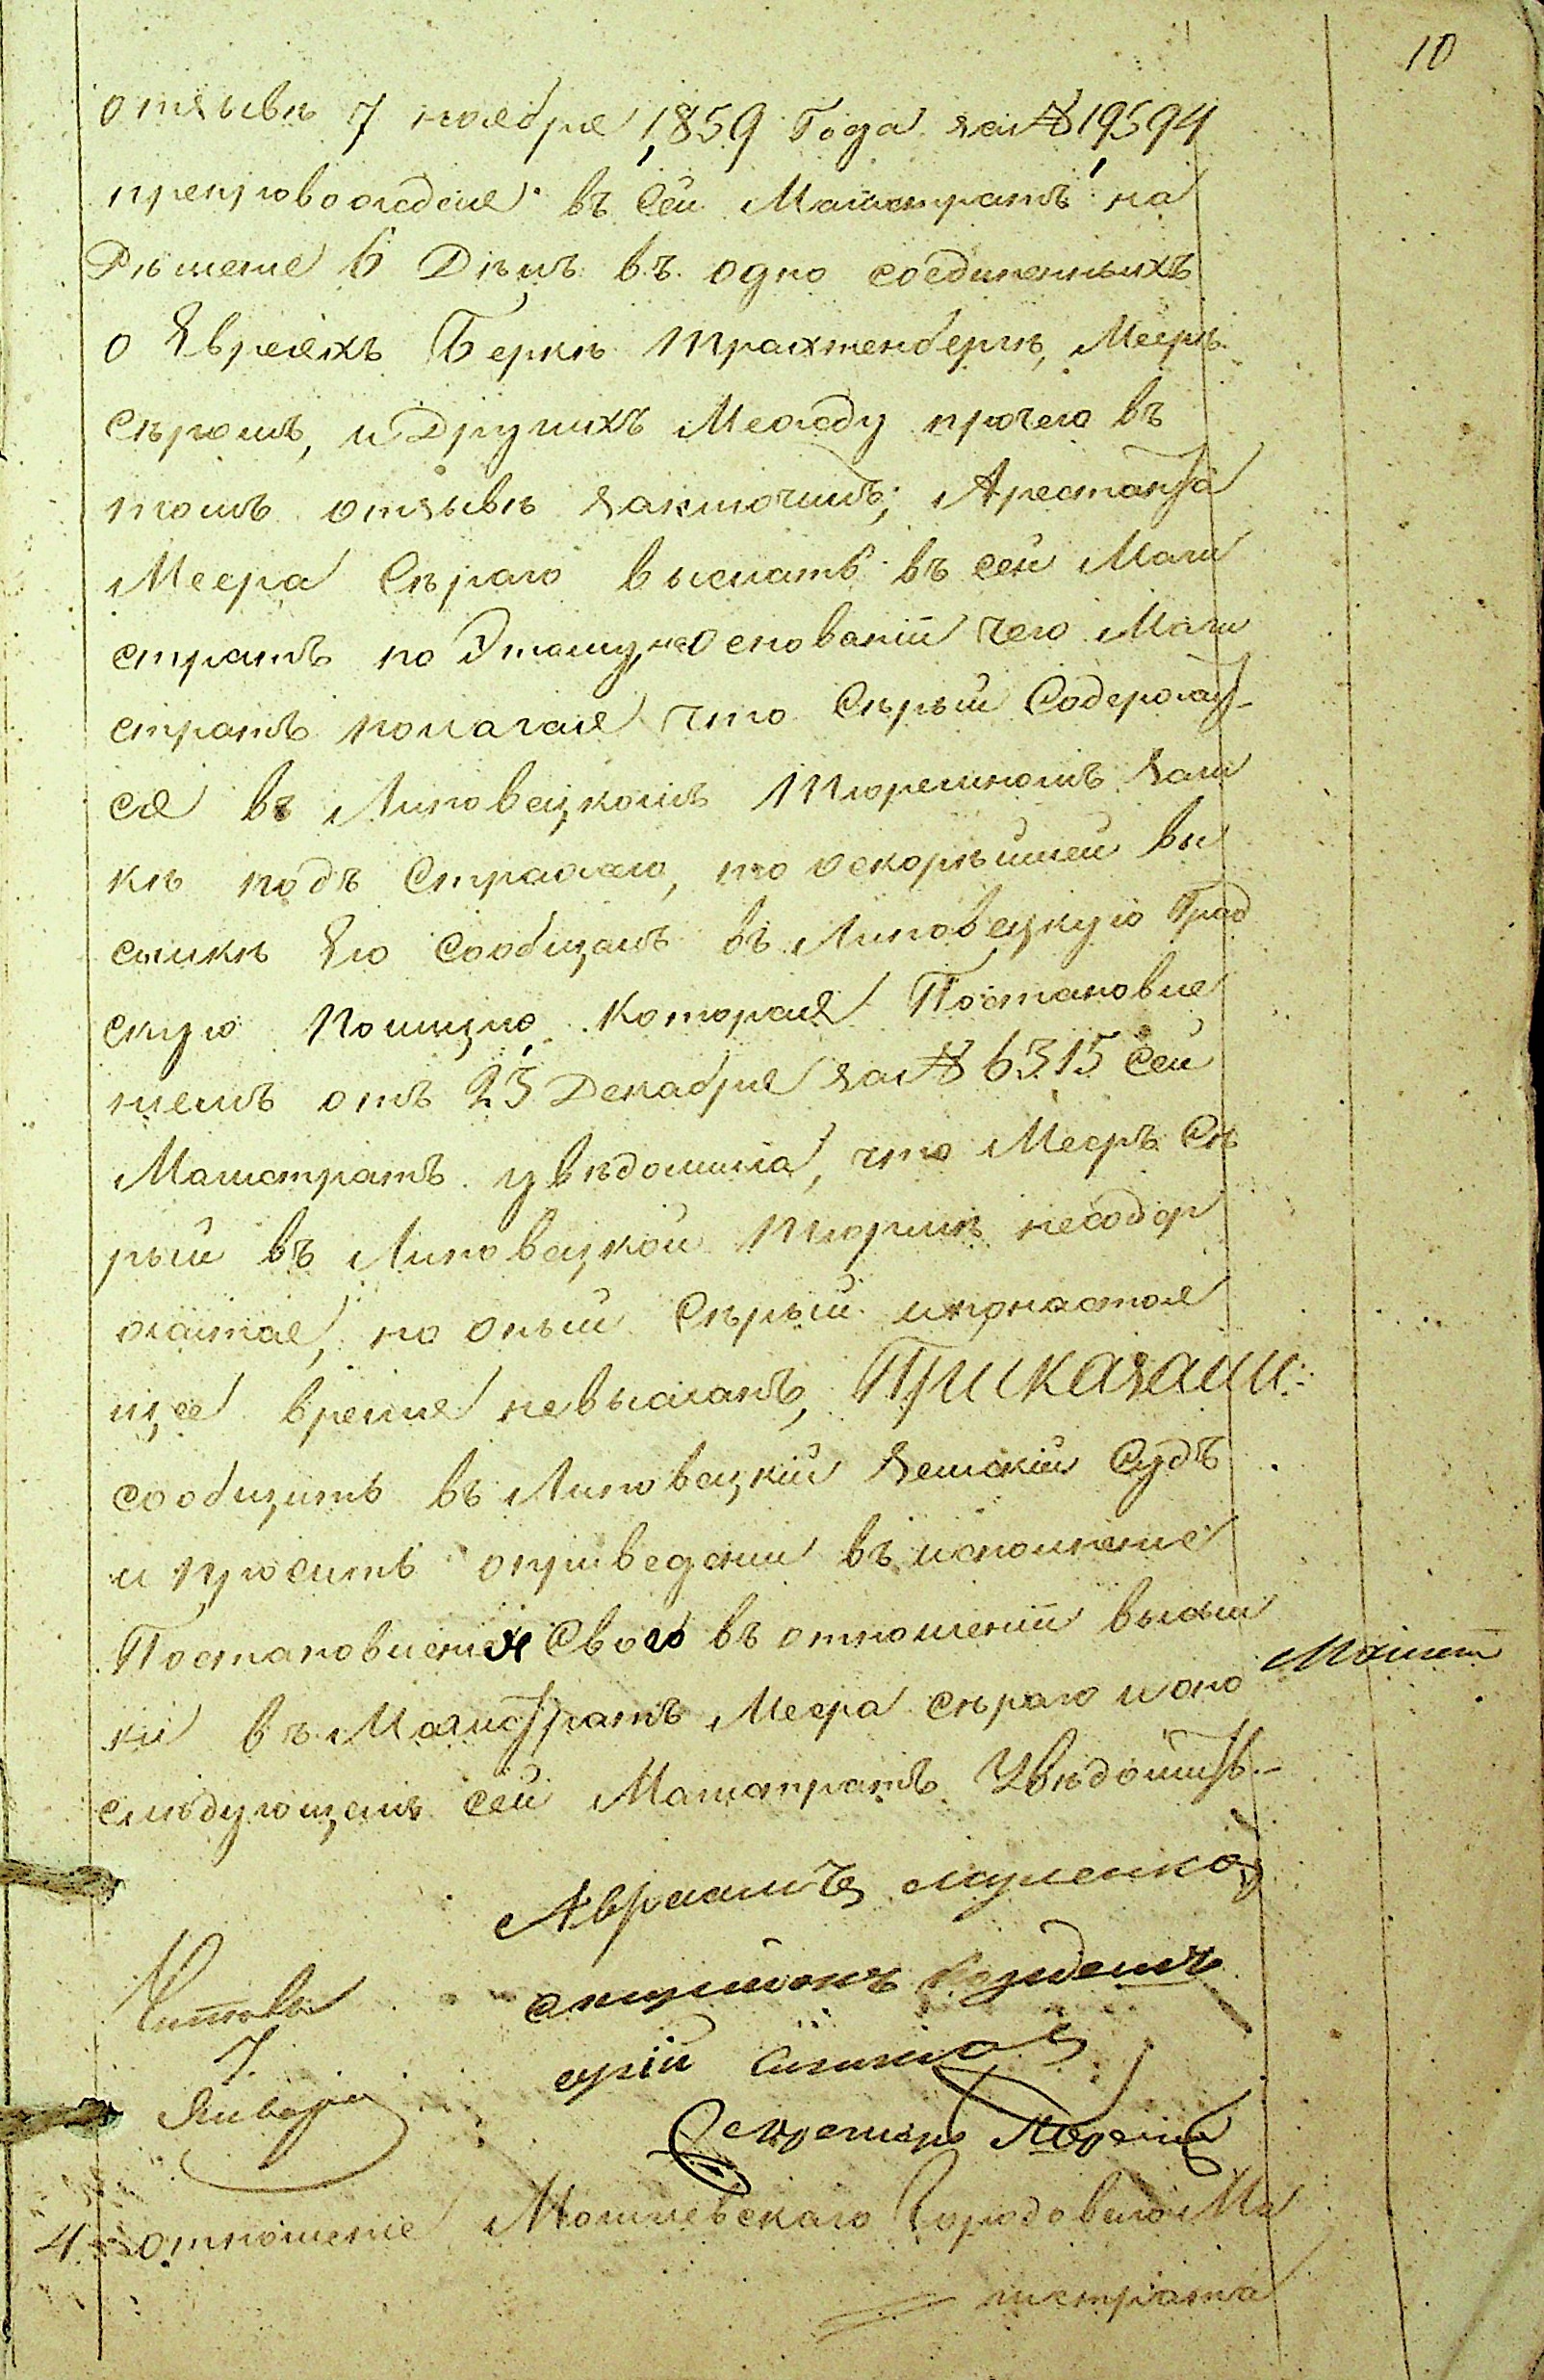 10
отзывѣ 7 ноября 1859 Года за № 19594
препровождая въ сей Магистратъ на
Рѣшеніе 6 Дѣлъ въ одно соединенныхъ
о Евреяхъ Беркѣ Трахтенбергѣ, Меерѣ
Сѣромъ, и Другихъ Между прочего въ
томъ отзывѣ заключилъ; Арестанта
Меера Сѣраго выслать въ сей Маги
стратъ по Этому, на Основаніи чего Маги
стратъ полагая что Сѣрый Содержит-
ся въ Липовецкомъ Тюремномъ Зам
кѣ подъ Стражаю, то оскорѣйшей вы
сылкѣ Его сообщалъ въ Липовецкую Град
скую Полицію Которая Постановле
ніемъ отъ 23 Декабря за № 6315 сей
Магистратъ увѣдомила, что Мееръ Сѣ
рый въ Липовецкой Тюрмѣ несодер
жится, но оный Сѣрый и понастоя
щее время невысланъ, Приказали:
сообщить въ Липовецкій Земскій Судъ
и просить оприведеніи въ исполненіе
Постановленія Своего въ отношеніи высыл
ки въ Магистратъ Меера сѣраго и опо
слѣдующемъ сей Магистратъ Увѣдомить.-
Магист
Авраамъ
Читалъ
7
Января
Секретарь
4 отношеніе Городоваго Ма
гистрата